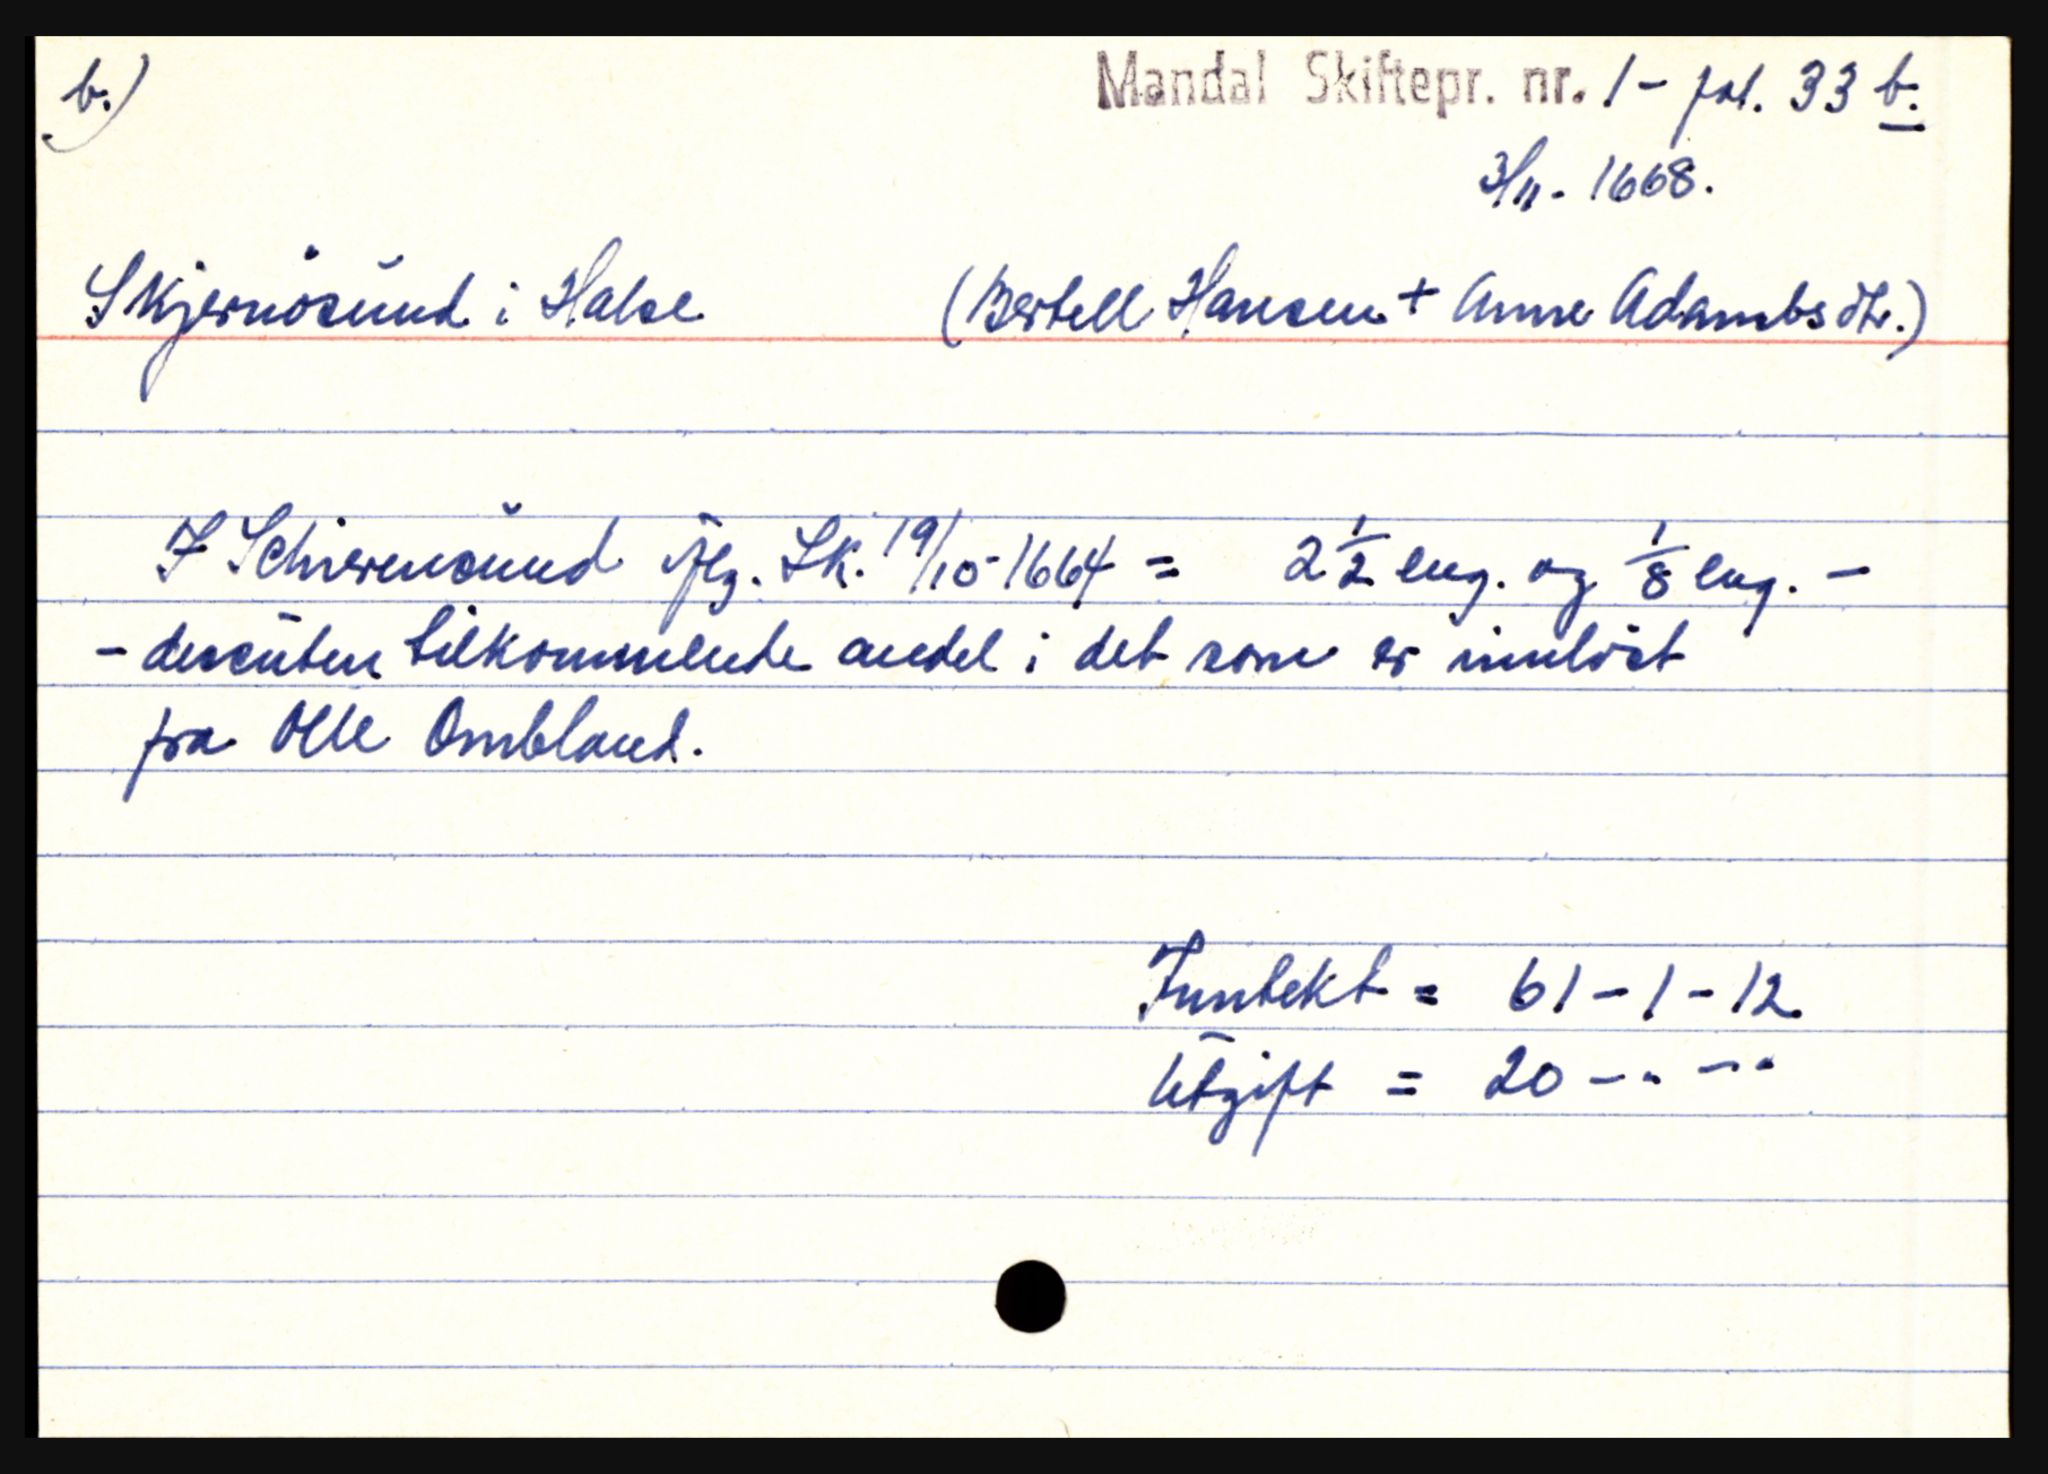 b.)
Mandal Skiftepr. nr. 1 - fol. 33 b.
3/11 - 1668.
Skjernøsund i Halse (Bertell Hansen + Anne Adambsdtr.)
I Schierensund iflg. Sk. 19/10-1664 = 2 1/2 eng. og 1/8 eng. -
- dessuten tilkommende andel i det som er innløst
fra Olle Ombland.
Inntekt = 61 - 1 - 12
Utgift = 20 - . - .